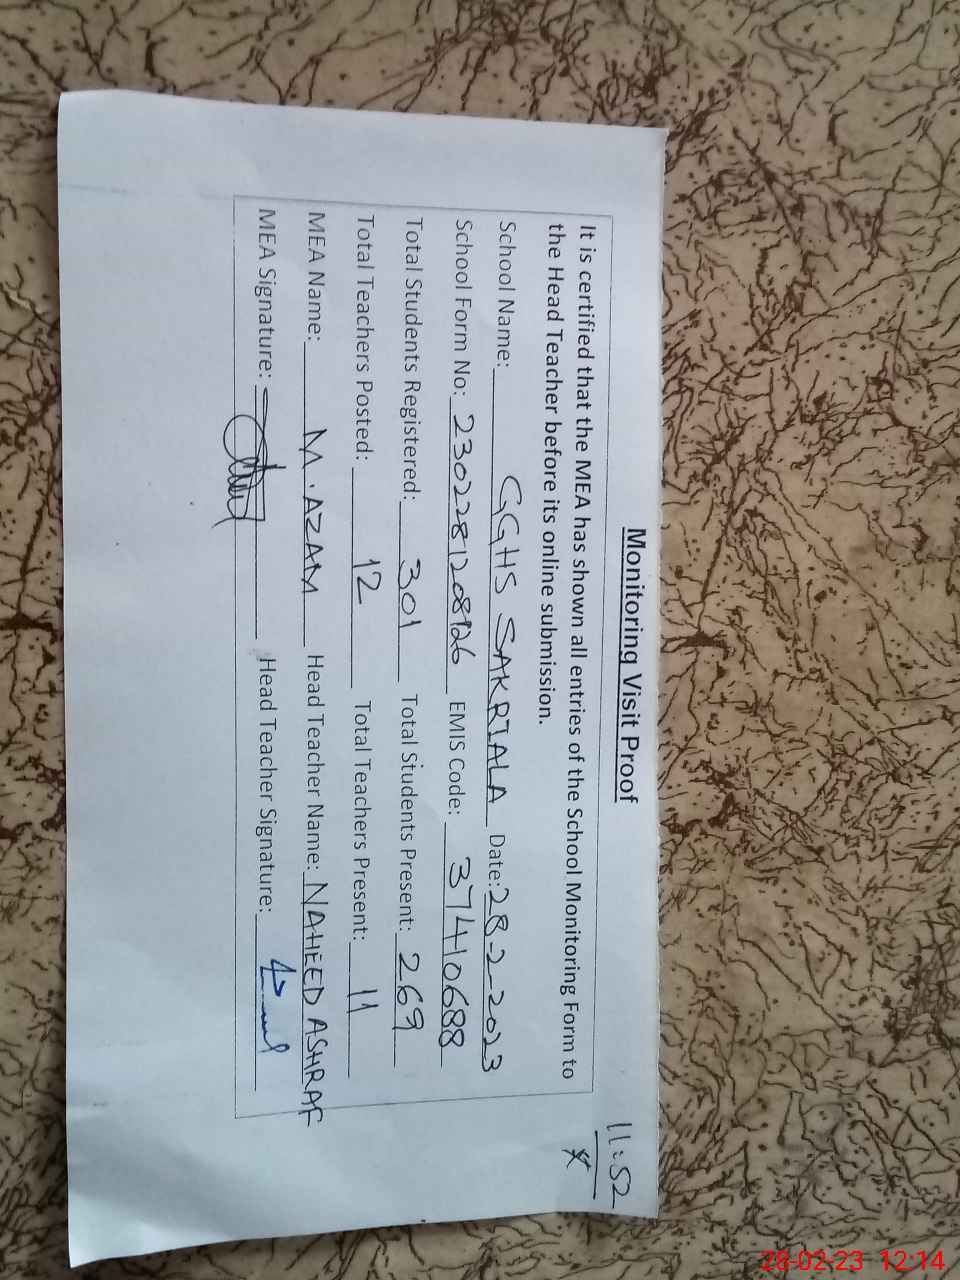 11:52
Monitoring Visit Proof
It is certified that the MEA has shown all entries of the School Monitoring Form to
the Head Teacher before its online submission.
School Name: GGHS SAKRIALA Date: 28-2-2023
School Form No: 2302281208126 EMIS Code: 37410688
Total Students Registered: 301 Total Students Present: 269
Total Teachers Posted: 12 Total Teachers Present: 11
MEA Name: M. AZAM Head Teacher Name: NAHEED ASHRAF
MEA Signature: Head Teacher Signature:
28-02-23 12:14